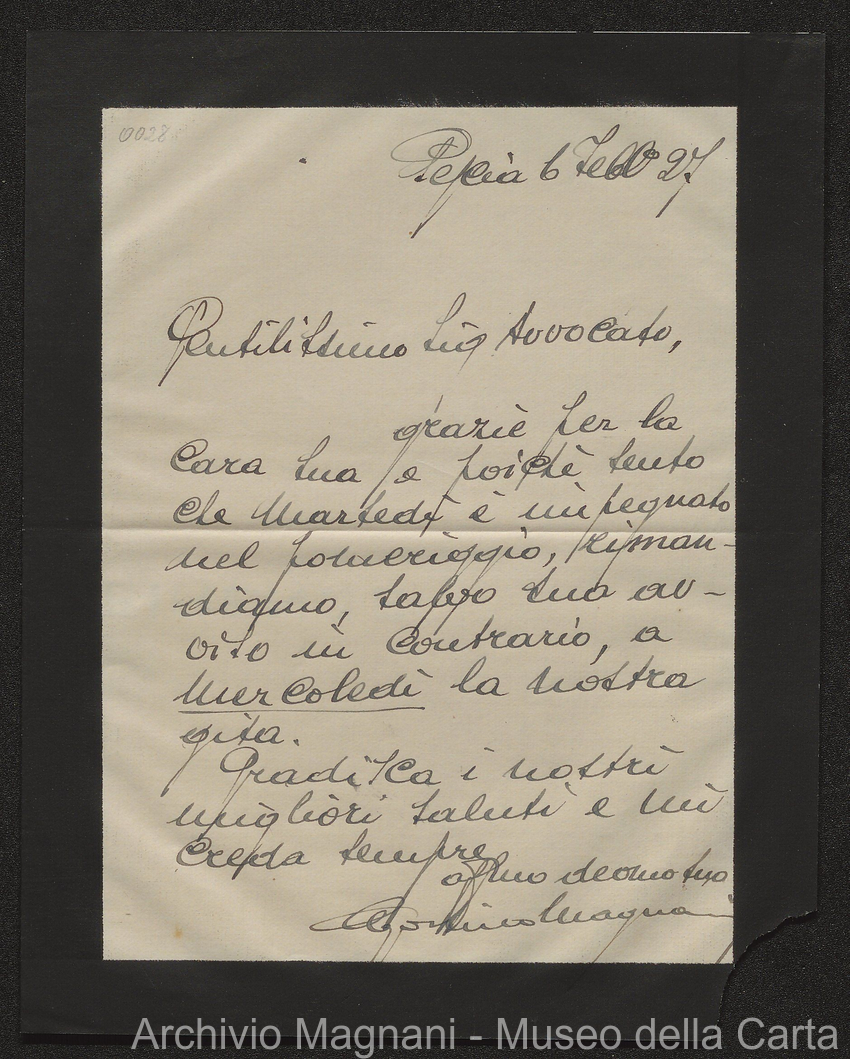 0028
Pescia 6 Febb° 27
Gentilissimo Sig Avvocato,
grazie per la
cara sua e poichè sento
che Martedì è impegnato
nel pomeriggio, riman-
diamo, salvo suo av-
viso in contrario, a
Mercoledì la nostra
gita.
Gradisca i nostri
migliori saluti e mi
creda sempre
affmo devmo suo
Agostino Magnani
Archivio Magnani - Museo della Carta